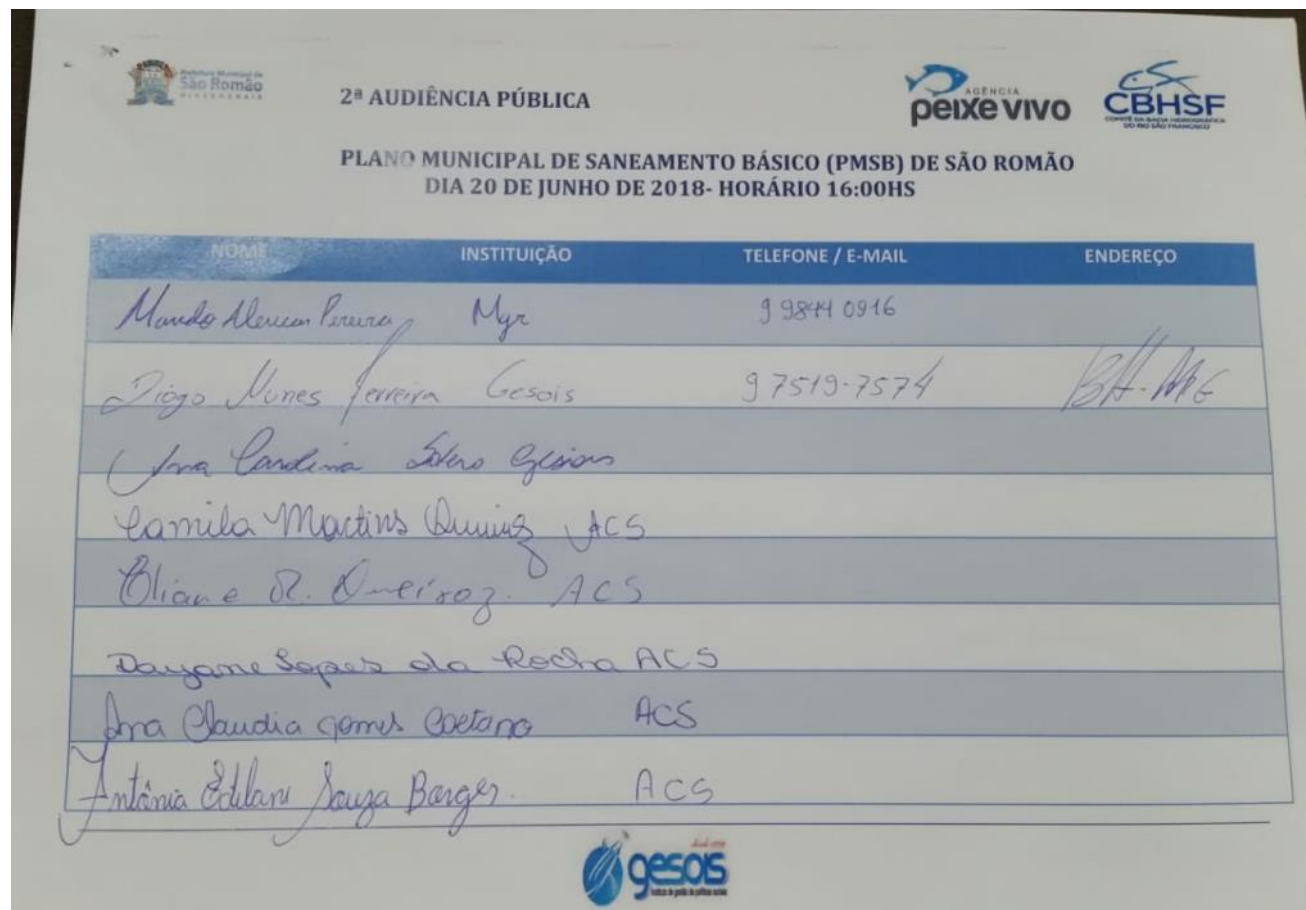 Prefeitura Municipal de
São Romão
MINAS GERAIS
2ª AUDIÊNCIA PÚBLICA
AGÊNCIA
peixe vivo
CBHSF
COMITÊ DA BACIA HIDROGRÁFICA
DO RIO SÃO FRANCISCO
PLANO MUNICIPAL DE SANEAMENTO BÁSICO (PMSB) DE SÃO ROMÃO
DIA 20 DE JUNHO DE 2018- HORÁRIO 16:00HS
NOME INSTITUIÇÃO TELEFONE / E-MAIL ENDEREÇO
Pereira 9 9844 0916
Diogo Nunes Ferreira Gesois 9 7519-7574 BH-MG
Ana Carolina Sotero Gesois
Camila Martins ACS
Eliane R. Queiroz. ACS
Dayane Lopes da Rocha ACS
Ana Claudia gomes Caetano ACS
Antônia Edilani Souza Borges. ACS
gesois